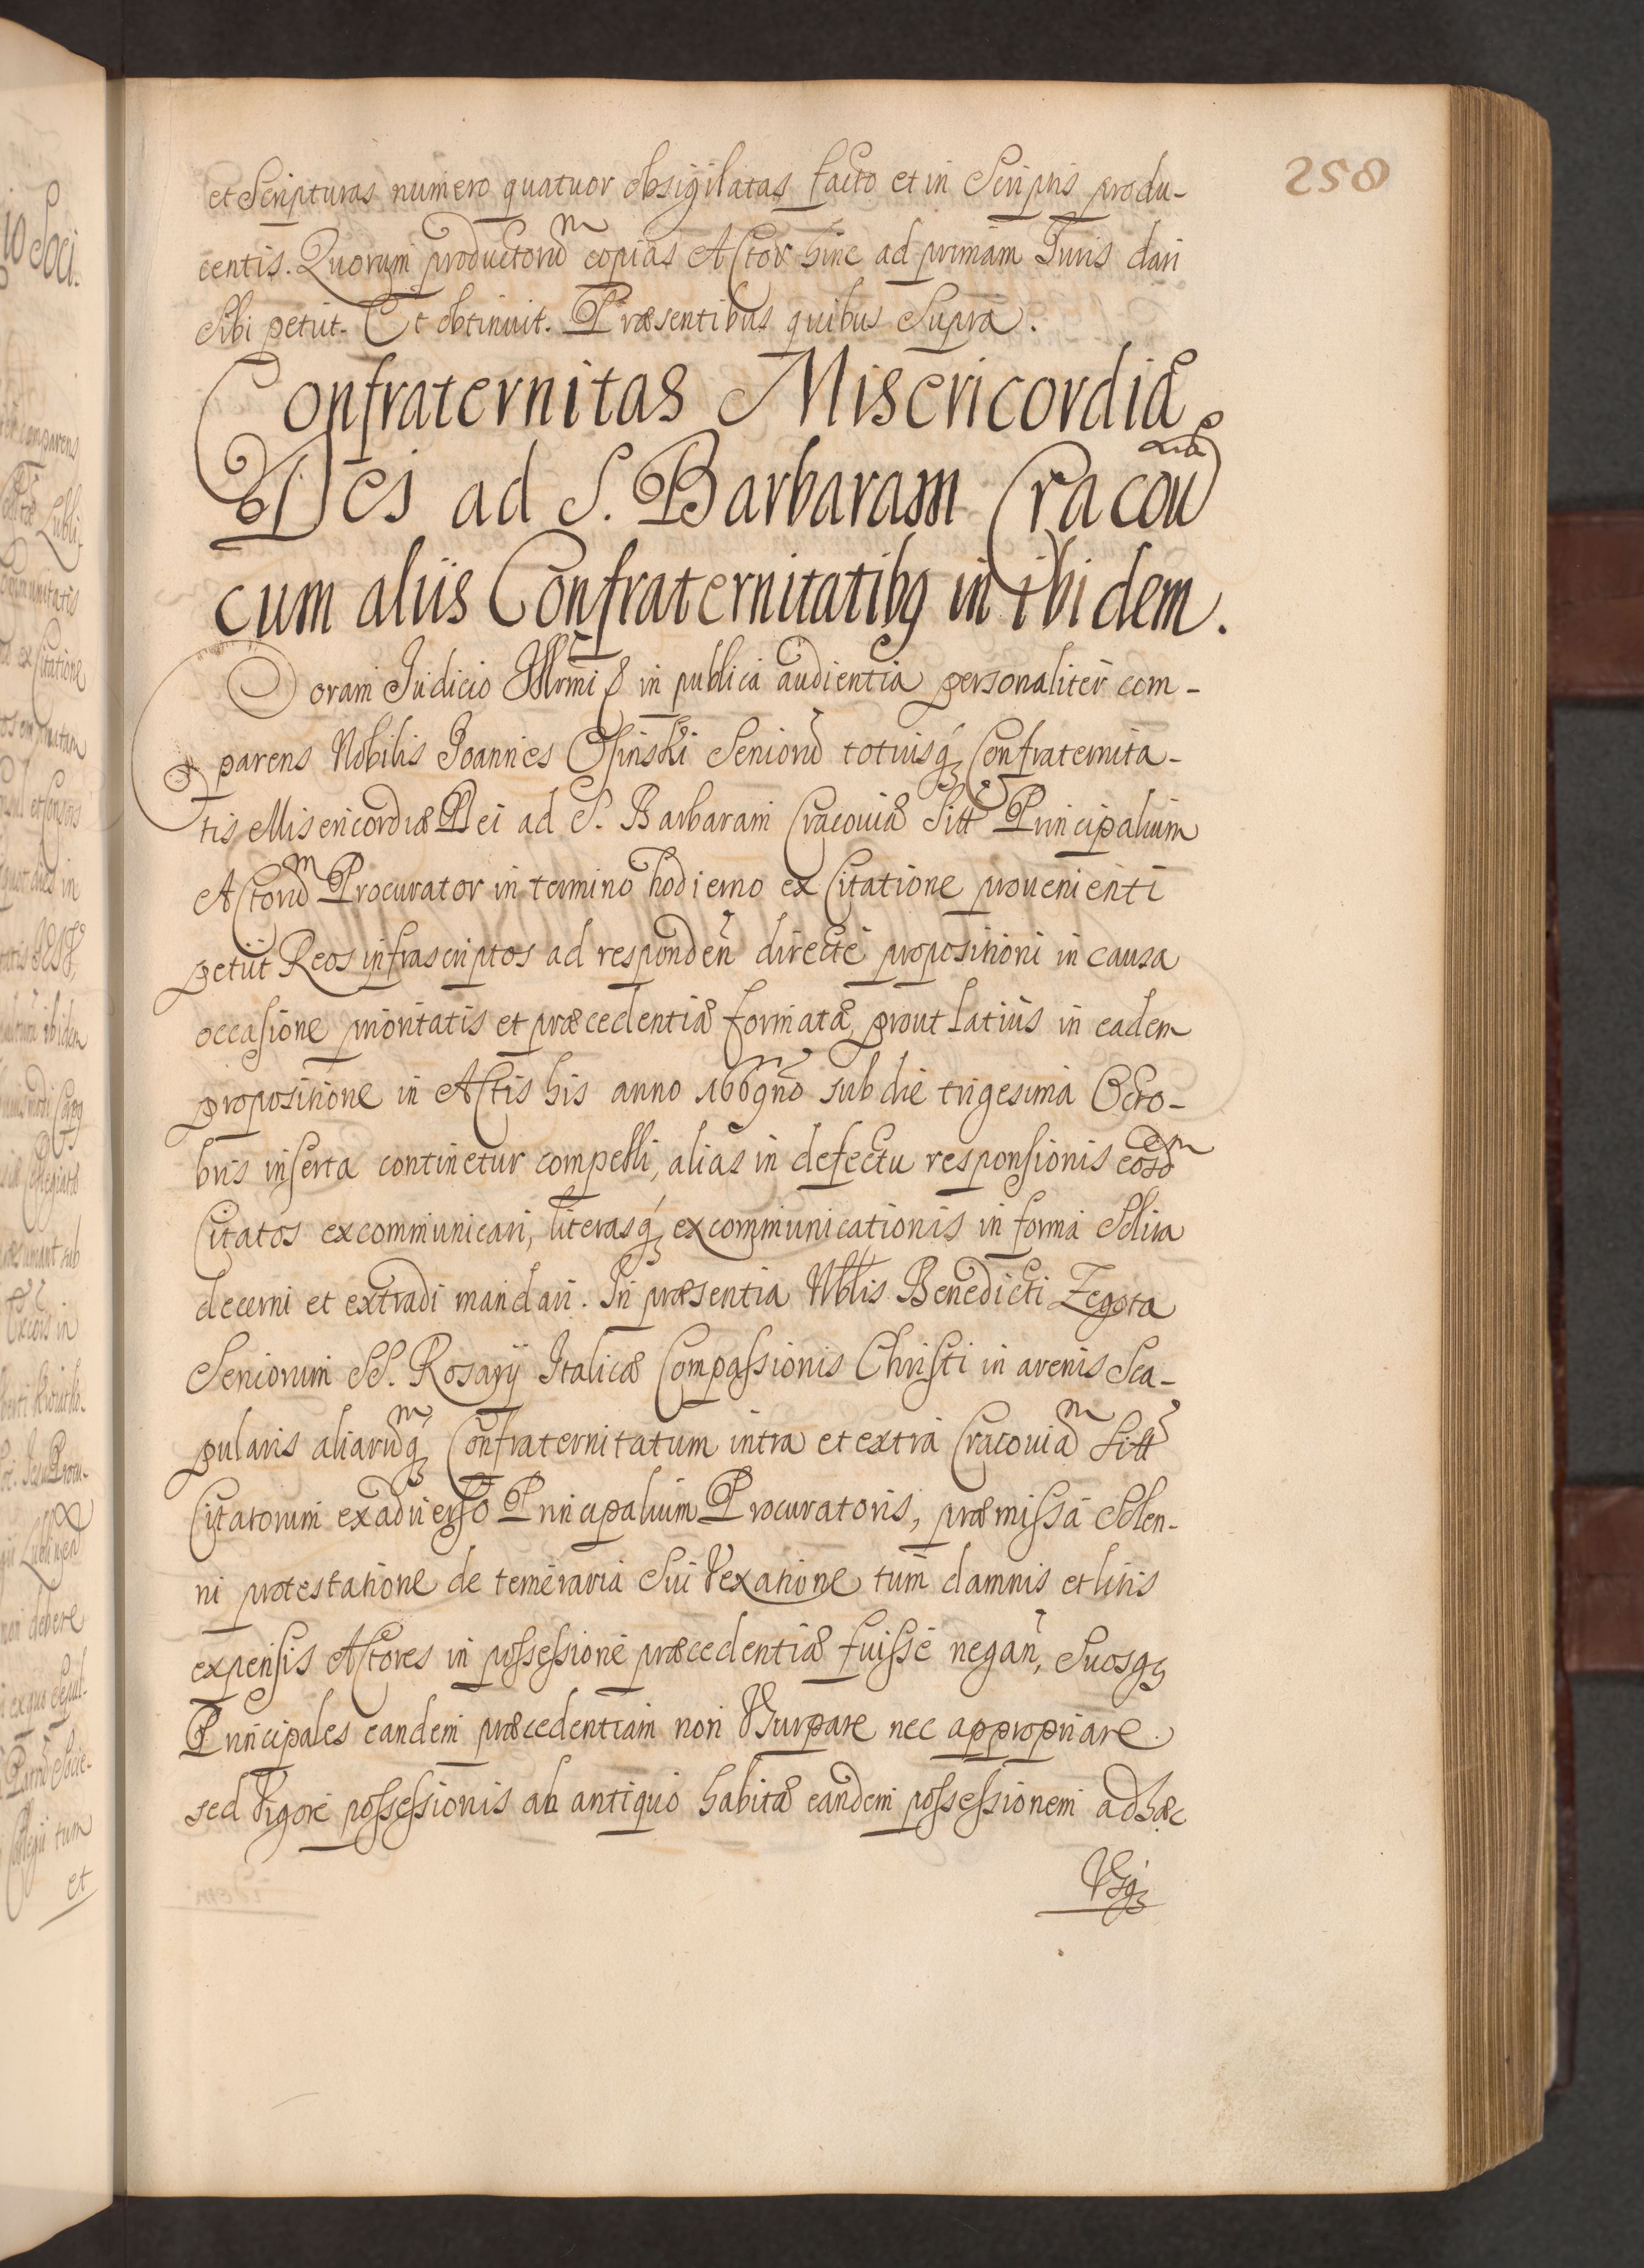 258
et Scripturas numero quatuor obsigilatas facto et in Scriptis produ-
centis. Quorum productorũ copias Actor hinc ad primam Iuris dari
Sibi petut. Et obtinuit. Præsentibus quibus Supra.
Confraternitas Misericordiæ
Dei ad S. Barbaram Cracou
cum aliis Confraternitatibq in ibidem.
Coram Iudicio Illrmi in publica audientia personaliter com-
parens Nobilis Joannes Osinski Seniorũ totiusq́ Confraternita-
tis Misericordiæ Dei ad S. Barbaram Cracouiæ Sitt Principalium
Actorũm Procurator in termino hodierno ex Citatione prouenienti
petiit Reos infrascriptos ad responden̄ directe propositioni in causa
occasione prioritatis et præcedentiæ formatæ prout latius in eadem
propositione in Actis his anno 1669no sub die trigesima Octo-
bris inserta continetur compelli, alias in defectu responsionis eosdem
Citatos excommunicari, literasq́ excommunicationis in forma Solita
decerni et extradi mandari. In præsentia Nblis Benedicti Zegota
Seniorum SS. Rosarij Italicæ Compassionis Christi in arenis Sca-
pularis aliarumq́ Confraternitatum intra et extra Cracouiam Sitt
Citatorum exaduerso Principalium Procuratoris, præmissa Solen-
ni protestatione de temeraria Sui Vexatione tum damnis et litis
expensis Actores in possessione præcedentiæ fuisse negan̄, Suosq
Principales eandem præcedentiam non Vsurpare nec appropriare
sed Vigore possessionis ab antiquo habitæ eandem possessionem ad hæc
Vsq́